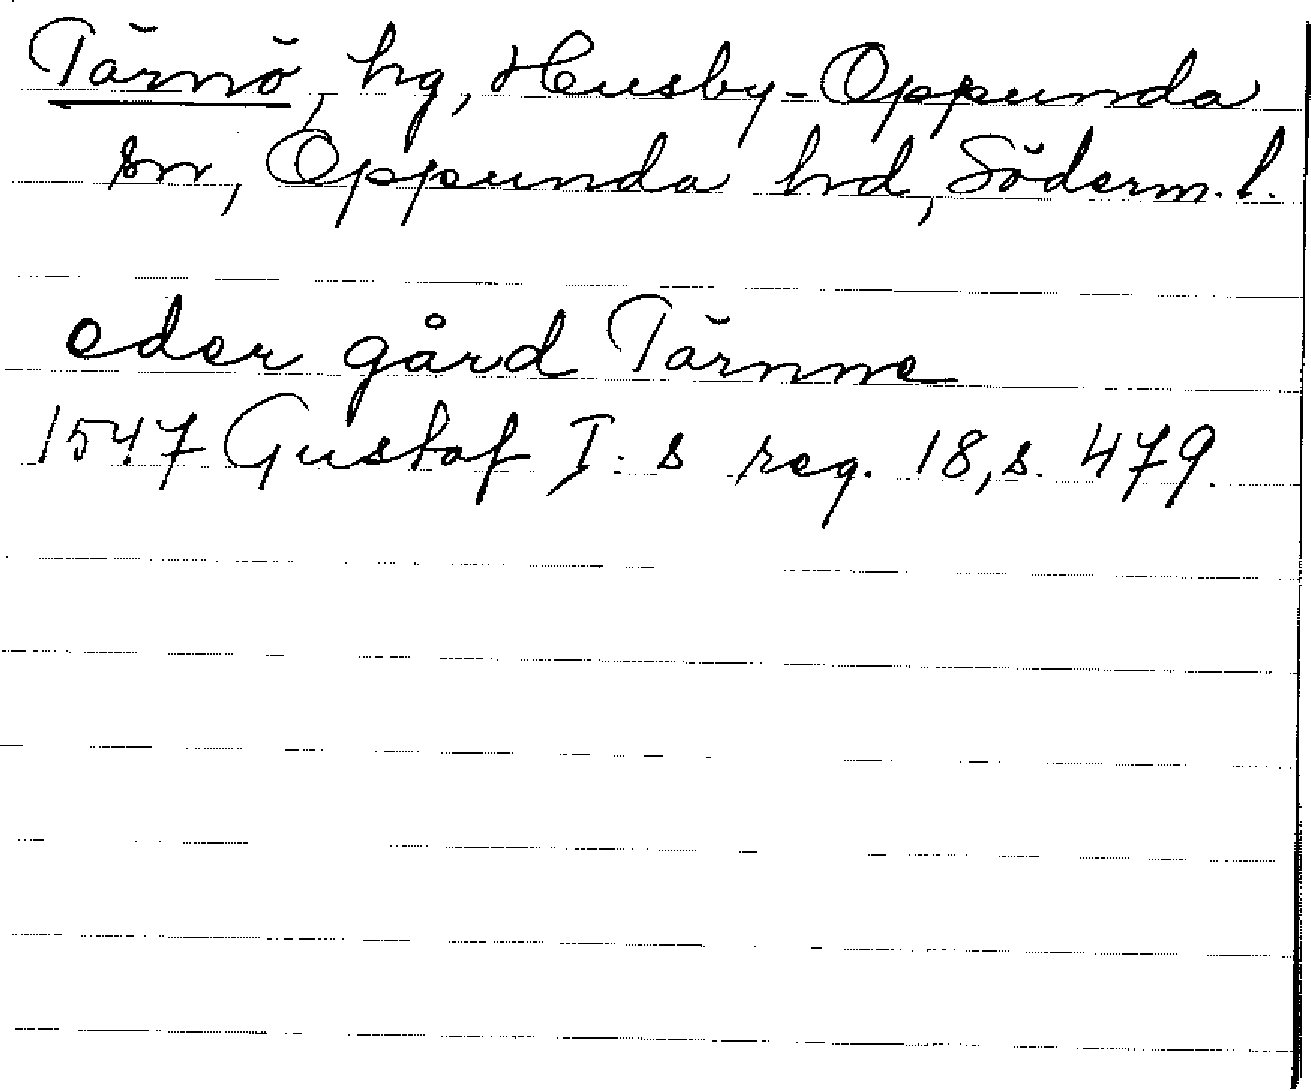 Tärnö, hg, Husby-Oppunda
sn, Oppunda hd, Söderm. l.
eder gård Tärnne
1547 Gustaf I: s reg. 18, s. 479.